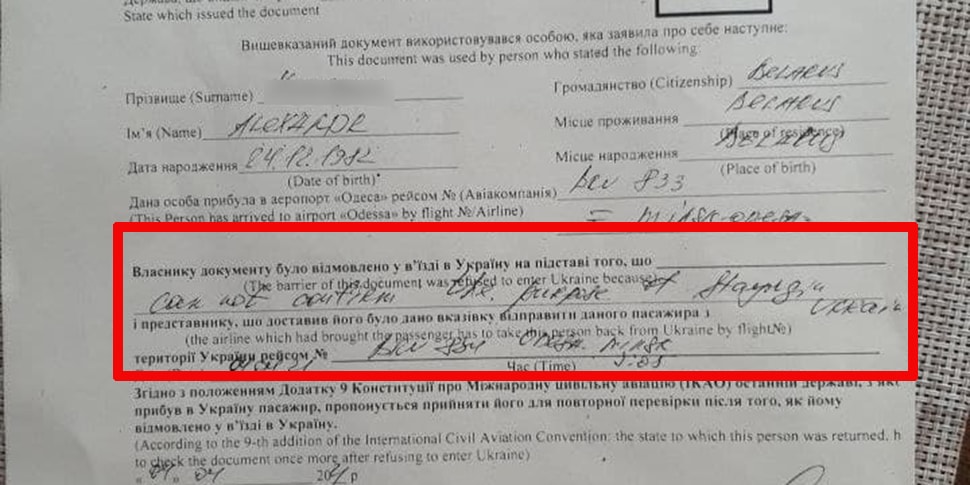 State which issued the document
Вишевказаний документ використовувався особою, яка заявила про себе наступне:
This document was used by person who stated the following:
Прізвище (Surname)
Громадянство (Citizenship) BELARUS
Ім'я (Name) ALEXANDR
Місце проживання BELARUS
(Place of residence)
Дата народження 24.12.1982
Місце народження BELARUS
(Date of birth)
(Place of birth)
Дана особа прибула в аеропорт «Одеса» рейсом № (Авіакомпанія) BRU 833
(This Person has arrived to airport «Odessa» by flight №/Airline) = MINSK-ODESA
Власнику документу було відмовлено у в'їзді в Україну на підставі того, що
(The barrier of this document was refused to enter Ukraine because of
can not confirm the purpose of staying in Ukraine
і представнику, що доставив його було дано вказівку відправити даного пасажира з
(the airline which had brought the passenger has to take this person back from Ukraine by flight№)
території України рейсом № BRU 834 ODESA MINSK
Час (Time)
Згідно з положенням Додатку 9 Конституції про Міжнародну цивільну авіацію (ІКАО) останній державі, з які
прибув в Україну пасажир, пропонується прийняти його для повторної перевірки після того, як йому
відмовлено у в'їзді в Україну.
(According to the 9-th addition of the International Civil Aviation Convention: the state to which this person was returned, h
to check the document once more after refusing to enter Ukraine)
04 2021 р